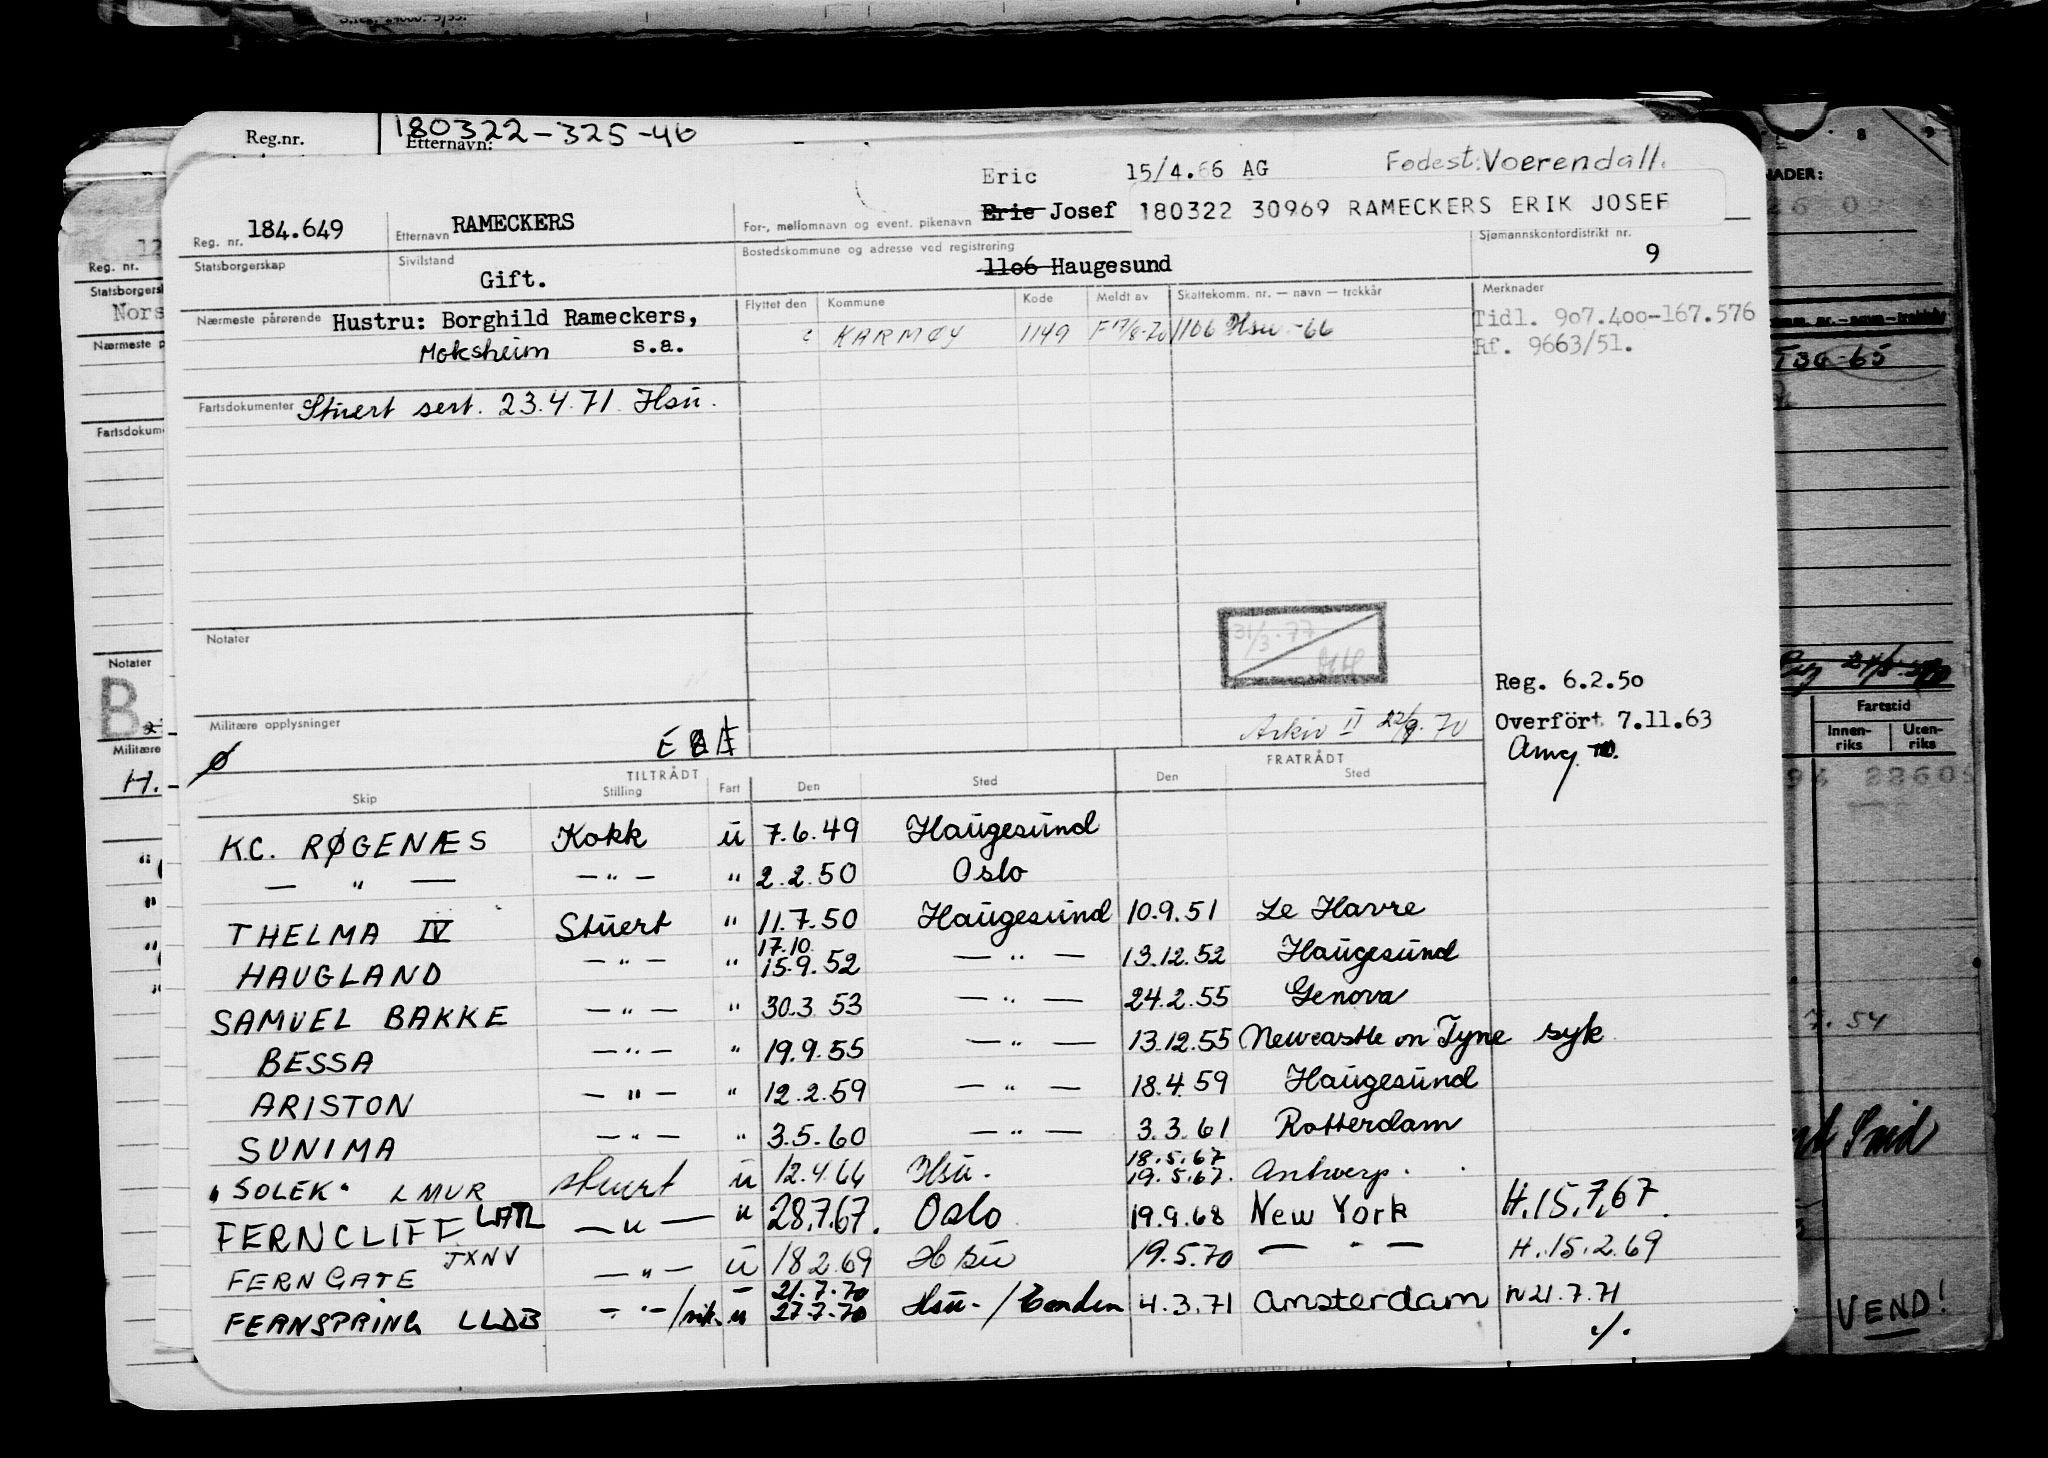 Reg.nr. 180322-325-46
Etternavn:
Eric 15/4.66 AG Fødest: Voerendall.
Reg. nr. 184.649 Etternavn RAMECKERS For-, mellomnavn og event. pikenavn Eric Josef 180322 30969 RAMECKERS ERIK JOSEF
Statsborgerskap Sivilstand Gift. Bostedskommune og adresse ved registrering 1106 Haugesund Sjømannskontordistrikt nr. 9
Nærmeste pårørende Hustru: Borghild Rameckers, Flyttet den Kommune Kode Meldt av Skattekomm. nr. — navn — trekkår Merknader
Moksheim s.a. KARMØY 1149 F 17/8-70 1106 Hsu -66 Tidl. 907.400-167.576
Rf. 9663/51.
Fartsdokumenter Stuert sert. 23.4.71 Hsu.
31/3.77
Notater
Reg. 6.2.50
Militære opplysninger
Arkiv II 22/9.70 Overført 7.11.63
Ø
TILTRÅDT FRATRÅDT
Skip Stilling Fart Den Sted Den Sted
K.C. RØGENÆS Kokk u 7.6.49 Haugesund
— " — — " — " 2.2.50 Oslo
THELMA IV Stuert " 11.7.50 Haugesund 10.9.51 Le Havre
17.10.
HAUGLAND — " — " 15.9.52 — " — 13.12.52 Haugesund
SAMUEL BAKKE — " — " 30.3.53 — " — 24.2.55 Genova
BESSA — " — " 19.9.55 — " — 13.12.55 Newcastle on Tyne syk
ARISTON — " — " 12.2.59 — " — 18.4.59 Haugesund
SUNIMA — " — " 3.5.60 — " — 3.3.61 Rotterdam
18.5.67
"SOLEK" LMUR stuert u 12.4.66 Hsu. 19.5.67. Antwerp.
FERNCLIFF LATL — " — " 28.7.67. Oslo 19.9.68 New York H.15.7.67.
FERNGATE JXNV — " — u 18.2.69 Hsu 19.5.70 — " — H.15.2.69
21.7.70
FERNSPRING LLDB — " — / u 27.7.70 Hsu. / Emden 4.3.71 Amsterdam 21.7.71
./.
Reg. nr.
Nors
Fartsdokum
Notater
B
Militære
H.
NADER:
T36-65
Fartstid
Innen-riks Uten-riks
7.54
VEND!